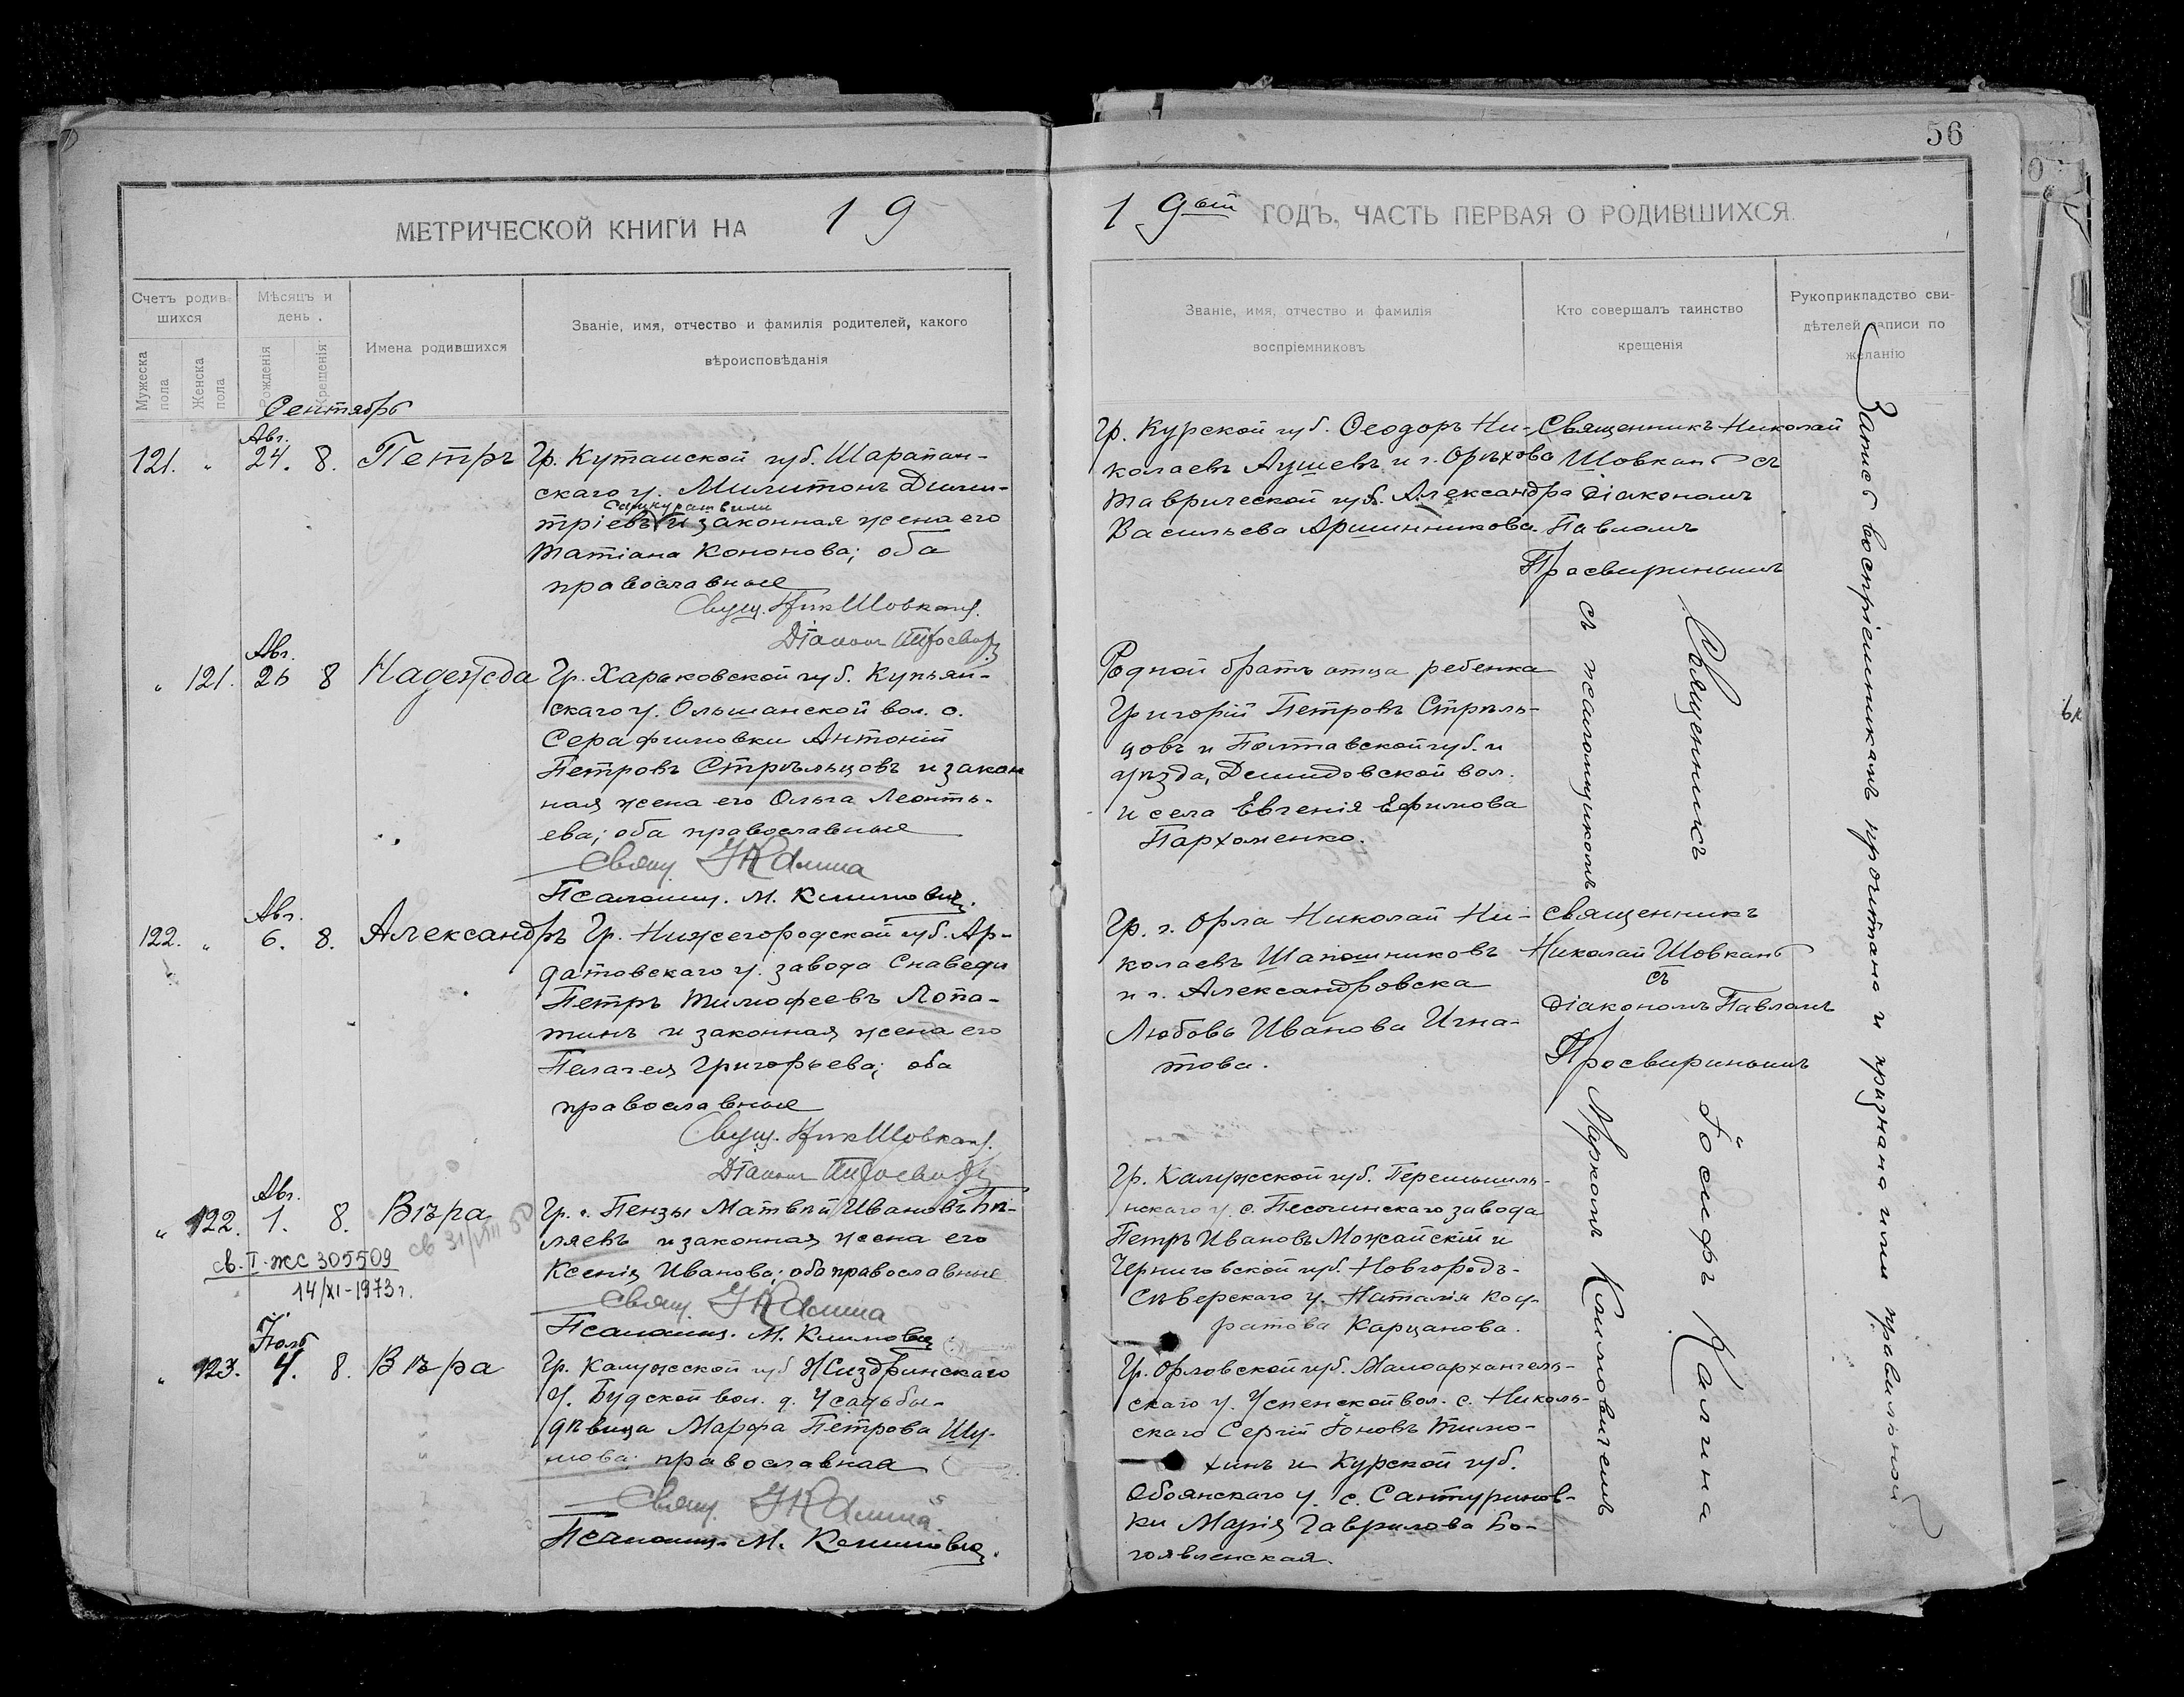 56
МЕТРИЧЕСКОЙ КНИГИ НА 1 9
1 9ый ГОДЪ, ЧАСТЬ ПЕРВАЯ О РОДИВШИХСЯ.
Счетъ родив-
шихся
Мужеска пола
Женска пола
Мѣсяцъ и
день.
Рожденія
Крещенія
Имена родившихся
Званіе, имя, отчество и фамилія родителей, какого
вѣроисповѣданія
Званіе, имя, отчество и фамилія
воспріемниковъ
Кто совершалъ таинство
крещенія
Рукоприкладство сви-
дѣтелей записи по
желанію
Сентябрь
Авг.
121. " 24. 8. Петръ
Гр. Кутаиской губ. Шарапан-
скаго у. Милитонъ Дими-
тріевъ и законная жена его
Татіана Кононова; оба
православные
Свящ. Ник Шовкань.
Діаконъ
Гр. Курской губ. Ѳеодоръ Ни-
колаевъ Аушевъ и г. Орѣхова
Таврической губ. Александра
Васильева Аршинникова.
Священникъ Николай
Шовкань съ
діакономъ
Павломъ
Просвиринымъ
Авг.
" 121. 26 8 Надежда
Гр. Харьковской губ. Купян-
скаго у. Ольшанской вол. с.
Серафимовки Антоній
Петровъ Стрѣльцовъ и закон
ная жена его Ольга Леонть-
ева; оба православные
Свящ. І Калина
Псаломщ. М. Климович.
Родной братъ отца ребенка
Григорій Петровъ Стрѣль-
цовъ и Полтавской губ. и
уѣзда, Демидовской вол.
и села Евгенія Ефимова
Пархоменко.
Авг.
122. " 6. 8. Александръ
Гр. Нижегородской губ. Ар-
датовскаго у. завода Снаведи
Петръ Тимофеевъ Лопа-
тинъ и законная жена его
Пелагея Григорьева; оба
православные
Свящ. Ник Шовкань.
Діаконъ
Гр. г. Орла Николай Ни-
колаевъ Шапошниковъ
и г. Александровска
Любовь Иванова Игна-
това.
Священникъ
Николай Шовкань
съ
діакономъ Павломъ
Просвиринымъ
Авг.
" 122. 1. 8. Вѣра
св. I-ЖС 305509
14/XI-1973 г.
св 31/VIII 50
Гр. г. Пензы Матвѣй Ивановъ Бѣ-
ляевъ и законная жена его
Ксенія Иванова; оба православные
Свящ. І Калина
Псаломщ. М. Климович.
Гр. Калужской губ. Перемышль-
нскаго у. с. Песочинскаго завода
Петръ Ивановъ Можайскій и
Черниговской губ. Новгородъ-
Сѣверскаго у. Наталія Код-
ратова Карцанова.
Іюль
" 123. 4. 8. Вѣра
Гр. Калужской губ Жиздринскаго
у. Будской вол. д. Усадьбы-
дѣвица Марфа Петрова Шу-
мова; православная
Свящ. І Калина
Псаломщ. М. Климович.
Гр. Орловской губ. Малоархангель-
скаго у. Успенской вол. с. Николь-
скаго Сергій Іоновъ Тимо-
хинъ и Курской губ.
Обоянскаго у. с. Сантуринов-
ки Марія Гаврилова Бо-
гоявленская.
Священникъ Іосифъ Калина
съ псаломщикомъ Маркомъ Климовичемъ
Запись воспріемникамъ прочитана и признана ими правильной